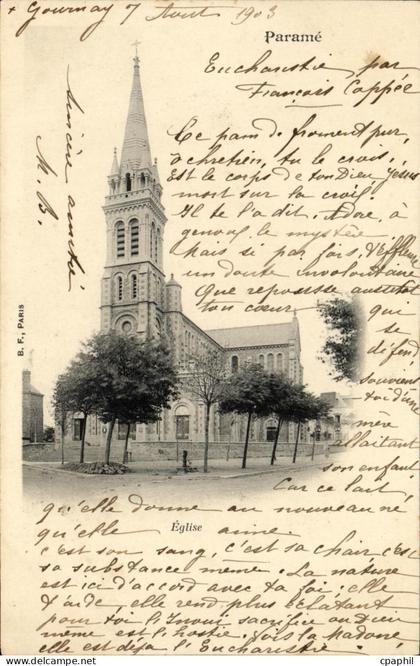 + Gournay 7 Aout 1903
Paramé
Eucharistie par
François Coppée
Ce pain de froment pur,
ô chrétien, tu le crois,
Est le corps de ton Dieu Jésus
mort sur la croix.
Il te l'a dit. Adore, à
genoux, le mystère
Mais si parfois, t'effleure
un doute involontaire
Que repousse aussitôt
ton cœur
que se
défend,
souviens
-toi d'une
mère
allaitant
son enfant,
Car ce lait,
qu'elle donne au nouveau né
qu'elle aime
c'est son sang, c'est sa chair, c'est
sa substance même. La nature
est ici d'accord avec ta foi, elle
t'aide, elle rend plus éclatant
pour toi l'
même est l'hostie, fais la madone
elle est déjà l'Eucharistie
Amitié
M. B.
B. F., PARIS
Église
www.delcampe.net
cpaphil